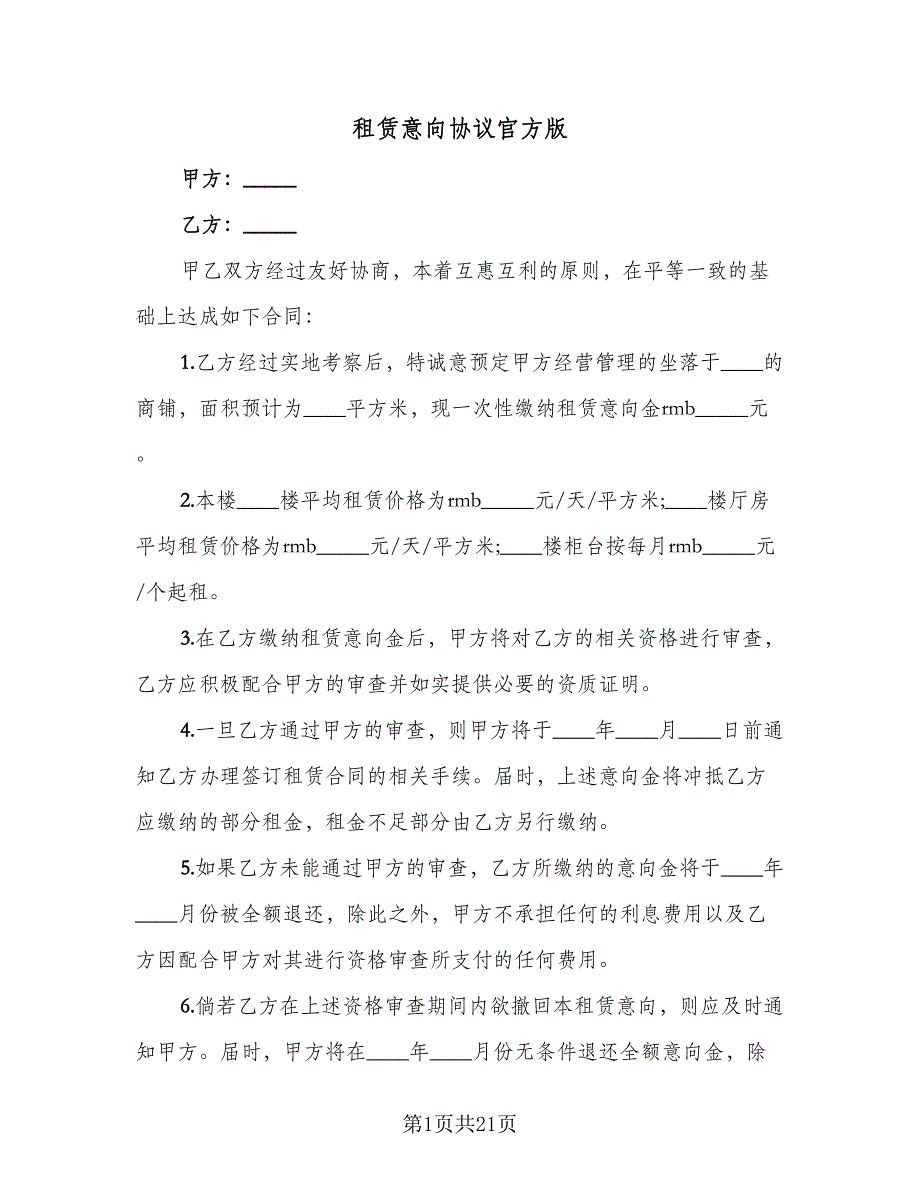 租赁意向协议官方版
甲方：_____
乙方：_____
甲乙双方经过友好协商，本着互惠互利的原则，在平等一致的基
础上达成如下合同：
1.乙方经过实地考察后，特诚意预定甲方经营管理的坐落于____的
商铺，面积预计为____平方米，现一次性缴纳租赁意向金rmb_____元
。
2.本楼____楼平均租赁价格为rmb_____元/天/平方米;____楼厅房
平均租赁价格为rmb_____元/天/平方米;____楼柜台按每月rmb_____元
/个起租。
3.在乙方缴纳租赁意向金后，甲方将对乙方的相关资格进行审查，
乙方应积极配合甲方的审查并如实提供必要的资质证明。
4.一旦乙方通过甲方的审查，则甲方将于____年____月____日前通
知乙方办理签订租赁合同的相关手续。届时，上述意向金将冲抵乙方
应缴纳的部分租金，租金不足部分由乙方另行缴纳。
5.如果乙方未能通过甲方的审查，乙方所缴纳的意向金将于____年
____月份被全额退还，除此之外，甲方不承担任何的利息费用以及乙
方因配合甲方对其进行资格审查所支付的任何费用。
6.倘若乙方在上述资格审查期间内欲撤回本租赁意向，则应及时通
知甲方。届时，甲方将在____年____月份无条件退还全额意向金，除
第1页共21页